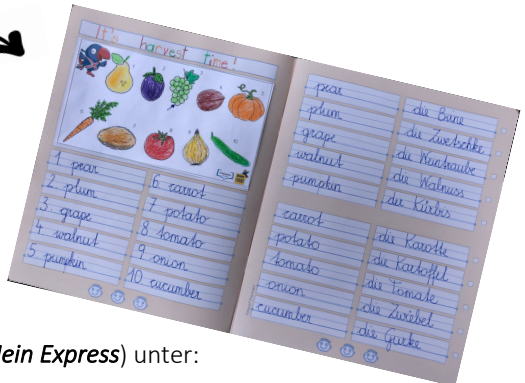 It's harvest time!
1 pear
2 plum
3 grape
4 walnut
5 pumpkin
6 carrot
7 potato
8 tomato
9 onion
10 cucumber
pear
plum
grape
walnut
pumpkin
die Birne
die Zwetschke
die Weintraube
die Walnuss
der Kürbis
carrot
potato
tomato
onion
cucumber
die Karotte
die Kartoffel
die Tomate
die Zwiebel
die Gurke
ein Express) unter: